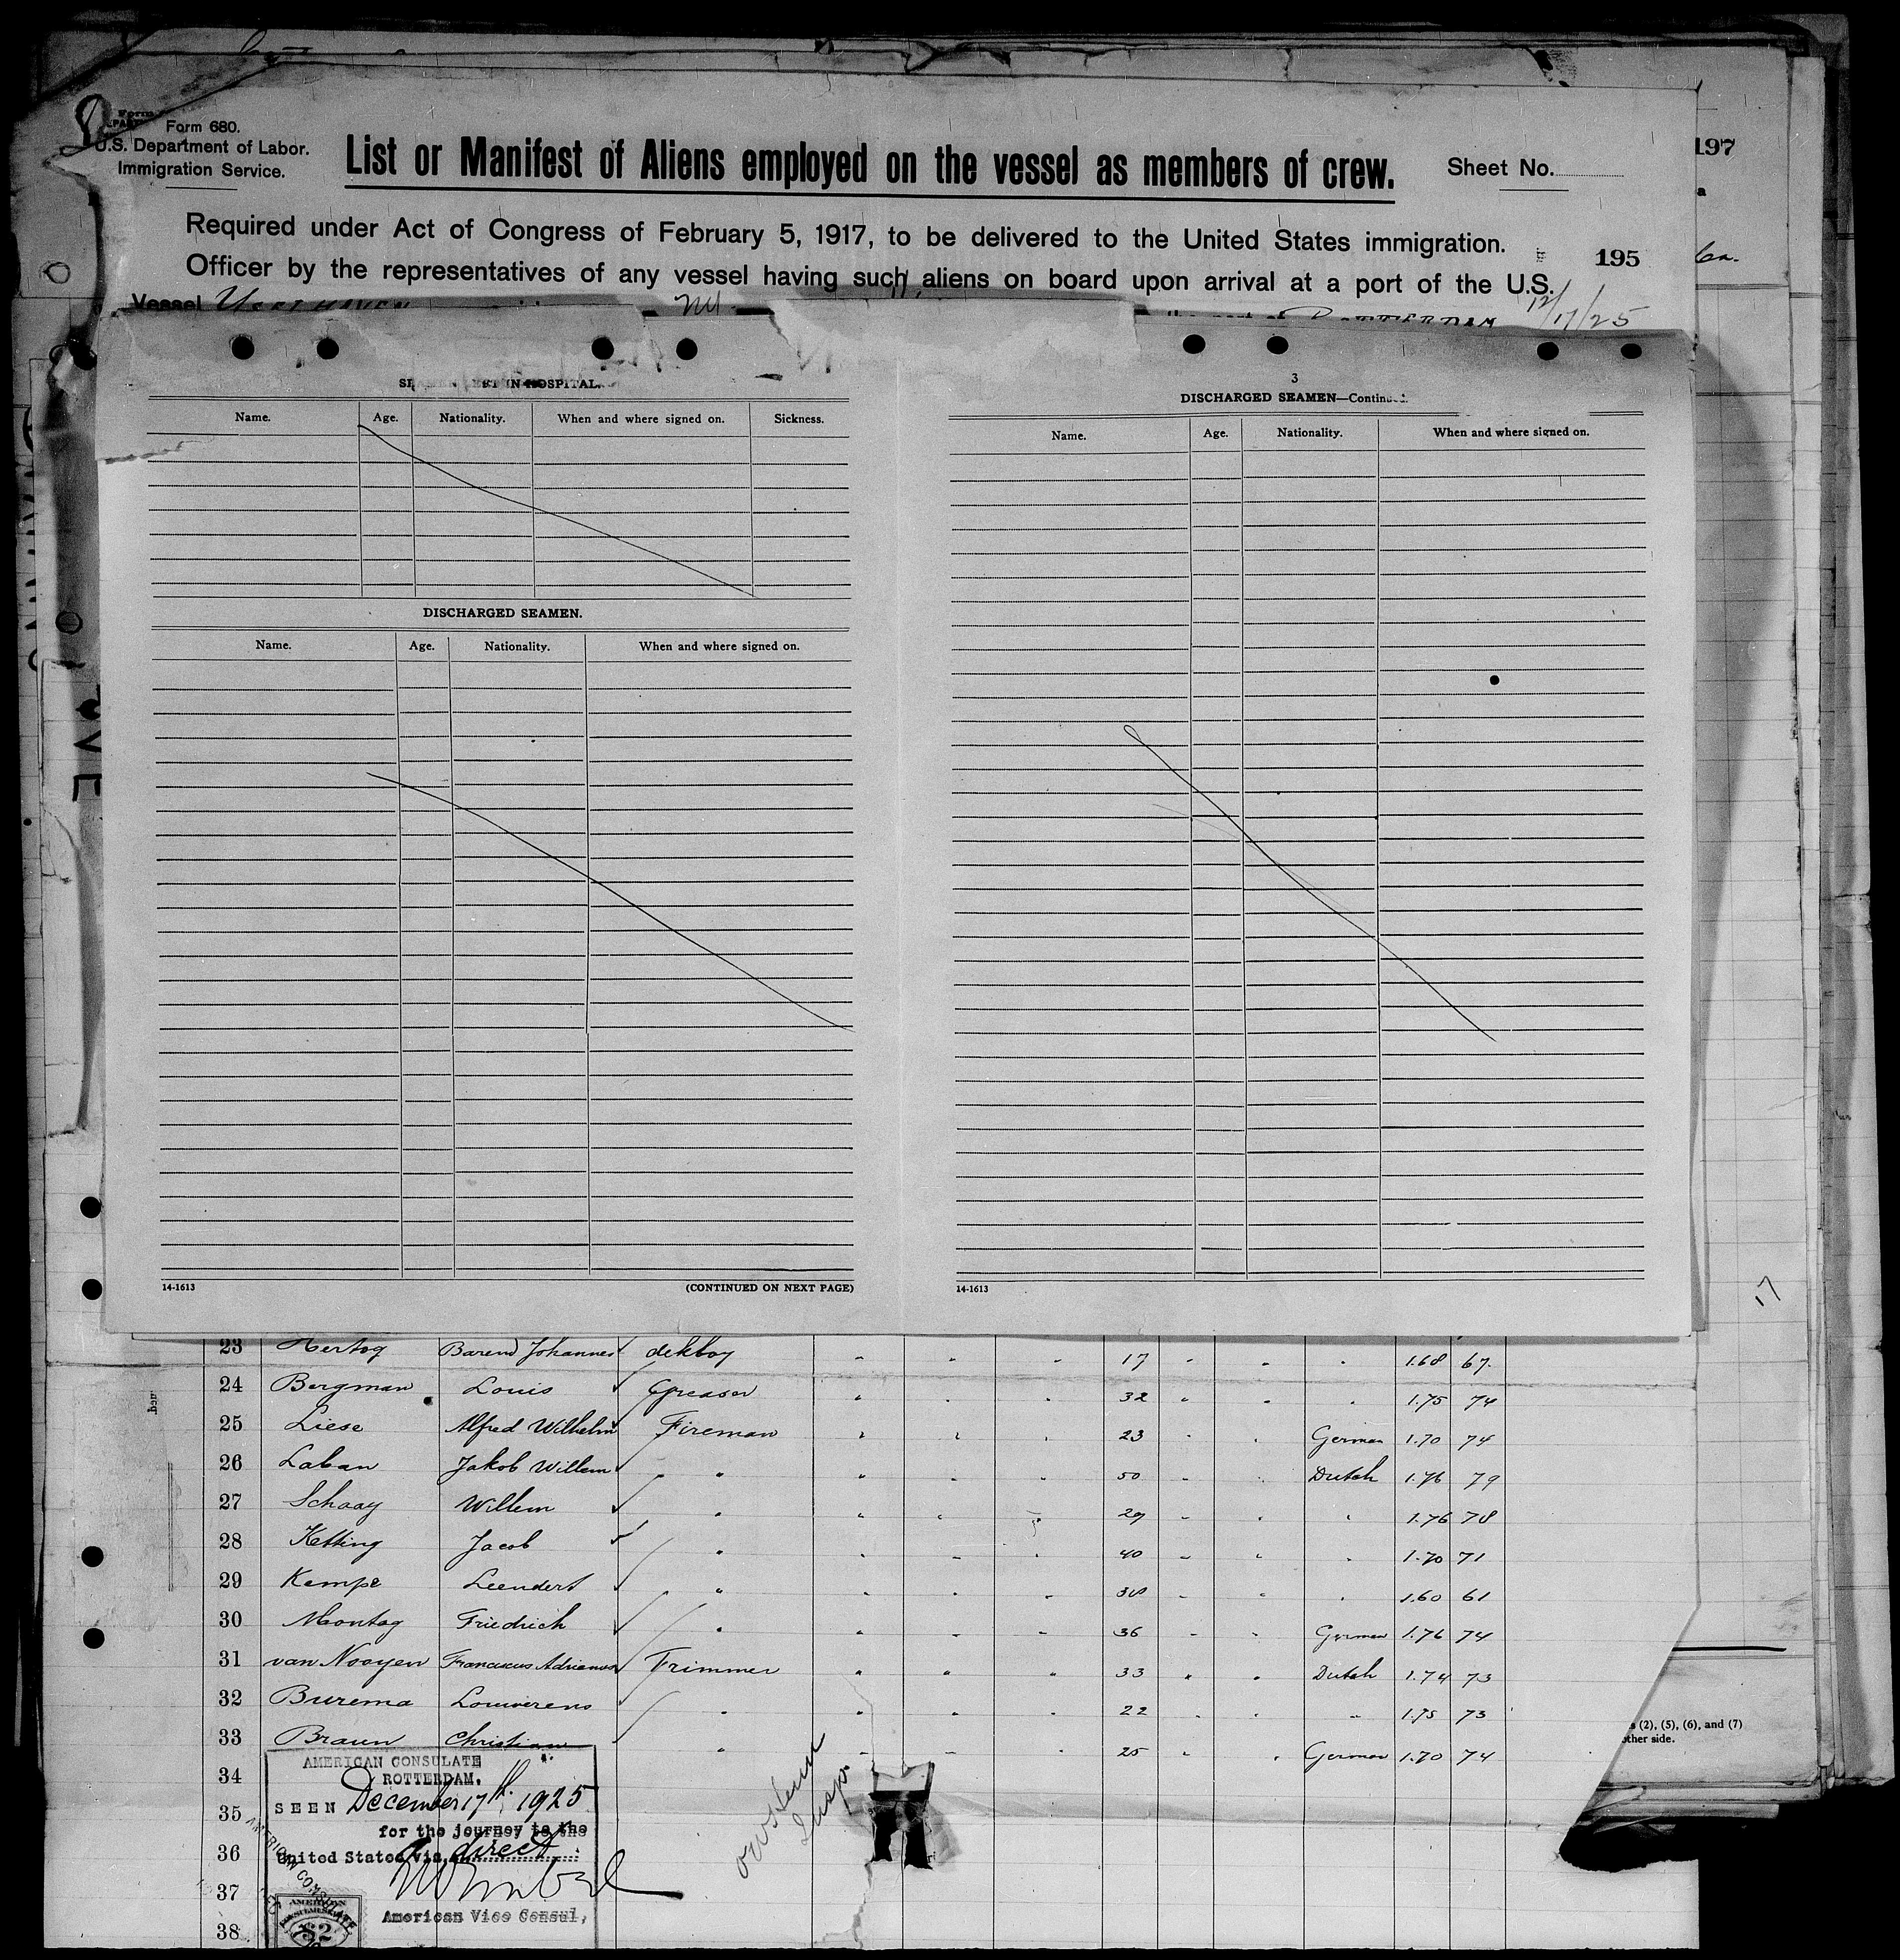 Form 680.
U.S. Department of Labor.
Immigration Service.
List or Manifest of Aliens employed on the vessel as members of crew.
Sheet No.
197
Required under Act of Congress of February 5, 1917, to be delivered to the United States immigration.
Officer by the representatives of any vessel having such aliens on board upon arrival at a port of the U.S.
195
Vessel
ROTTERDAM 12/17/25
IN HOSPITAL.
Name. Age. Nationality. When and where signed on. Sickness.
DISCHARGED SEAMEN.
Name. Age. Nationality. When and where signed on.
14-1613 (CONTINUED ON NEXT PAGE)
3
DISCHARGED SEAMEN—Continued.
Name. Age. Nationality. When and where signed on.
14-1613
17
23 Hertog Barend Johannes dekboy " " " 17 " " " 1.68 67.
24 Bergman Louis Greaser " " " 32 " " " 1.75 74
25 Liese Alfred Wilhelm Fireman " " " 23 " " German 1.70 74
26 Laban Jakob Willem " " " " 50 " " Dutch 1.76 79
27 Schaay Willem " " " " 29 " " " 1.76 78
28 Ketting Jacob " " " " 40 " " " 1.70 71
29 Kempe Leendert " " " " 38 " " " 1.60 61
30 Montag Friedrich " " " " 36 " " German 1.76 74
31 van Nooyen Franciscus Adrianus Trimmer " " " 33 " " Dutch 1.74 73
32 Burema Louwerens " " " " 22 " " " 1.75 73
33 Braun Christian " " " " 25 " " German 1.70 74
34
35
36
37
38
AMERICAN CONSULATE
ROTTERDAM.
SEEN December 17th, 1925
for the journey to the
United States via direct
American Vice Consul,
AMERICAN CONSULATE
AMERICAN
$2
Insp.
s (2), (5), (6), and (7)
other side.